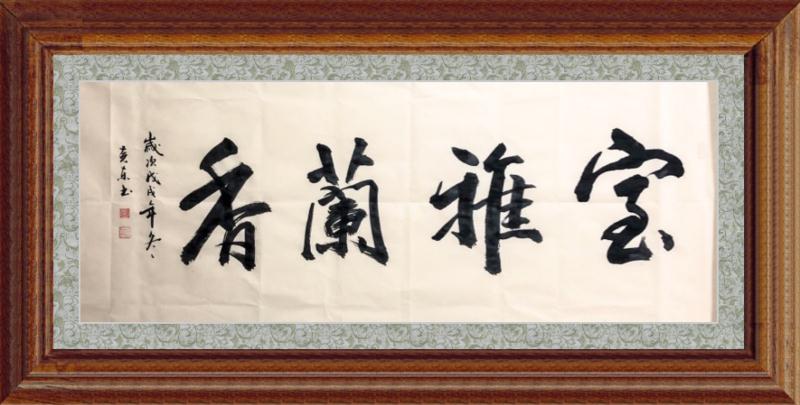 室雅蘭香
歲次戊戌年冬